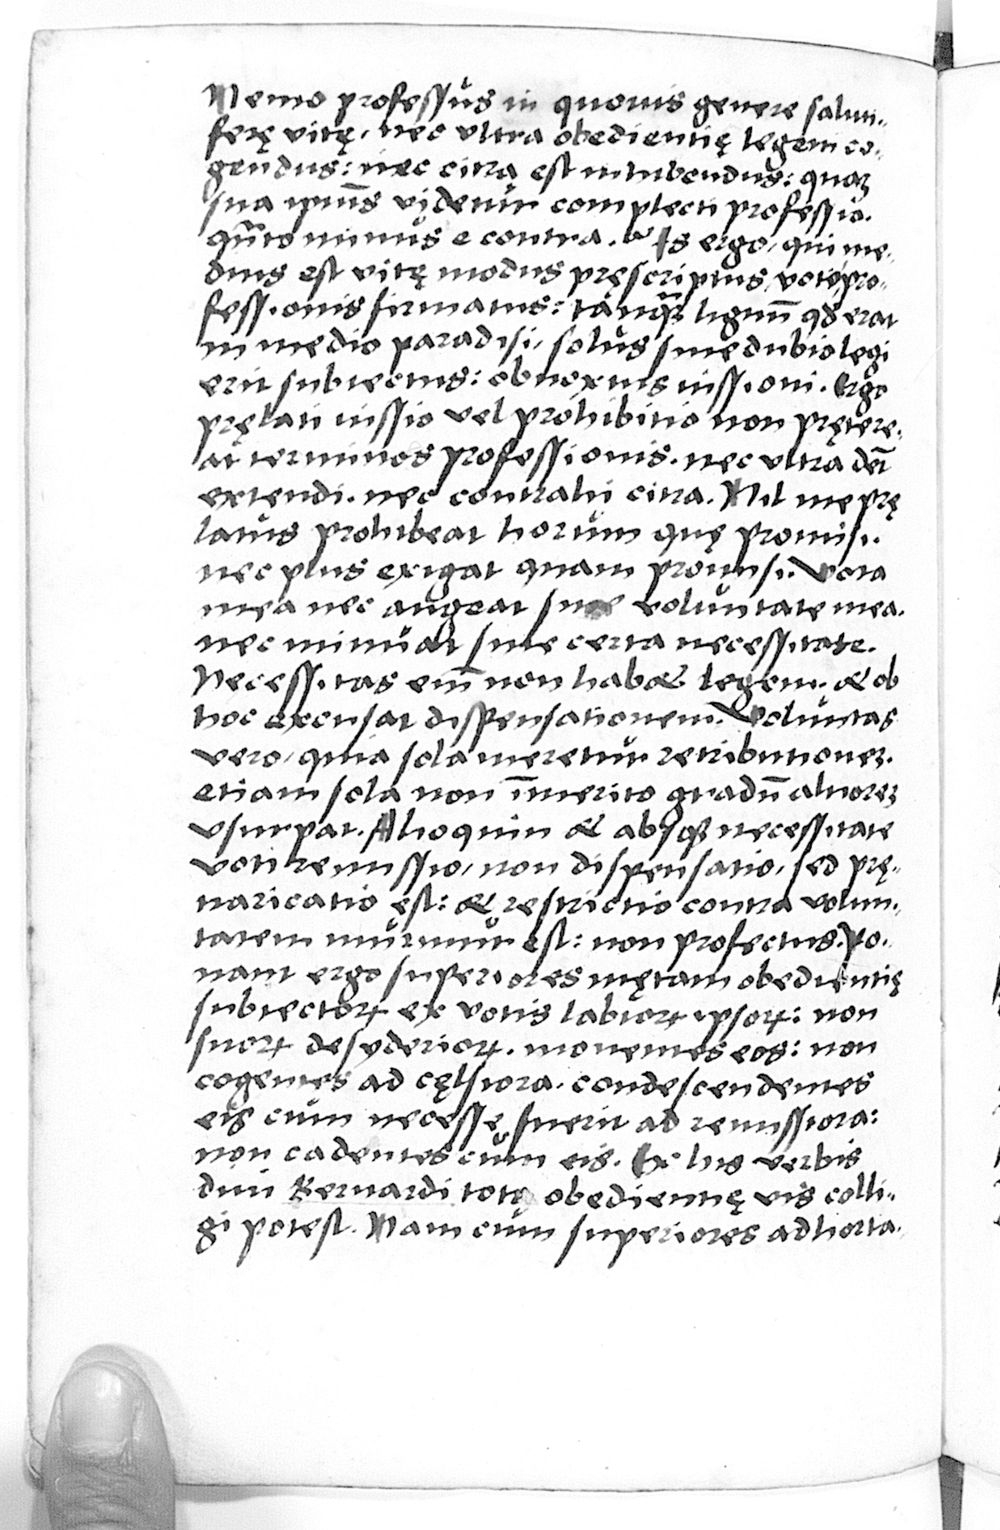 Nemo professus in quovis genere saluti-
ferę vitę, nec vltra obedientię legem co-
gendus: nec citra est inhibendus: quaʒ
sua ipsiꝰ videtur complecti professio.
quāto minus e contra. Is ergo, qui me-
dius est vitę modus pręscriptus, voto pro-
fessionis firmatus: tanqꝫ lignū qd erat
in medio paradisi, solus sine dubio legi
erit subiectus: obnoxius iussioni. Ergo
pręlati iussio vel prohibitio non prętere-
at terminos professionis. nec vltra det
extendi. nec contrahi citra. Nil me prę
latus prohibeat horum quę promisi.
nec plus exigat quam promisi. Vota
mea nec augeat sine voluntate mea.
nec minuat sine certa necessitate.
Necessitas em̄ non habet legem. & ob
hoc excusat dispensationem. Voluntas
vero, quia sola meretur retributioneʒ.
etiam sola non īmerito gradū altioreʒ
vsurpat. Alioquin & absqꝫ necessitate
voti remissio, non dispensatio, sed prę-
uaricatio est: & restrictio contra volun-
tatem murmur est: non profectus. Po-
nant ergo superiores mętam obedientię
subiectoꝝ ex votis labioꝝ ipsoꝝ: non
suoꝝ desyderioꝝ. monentes eos: non
cogentes ad cęlsiora. condescendentes
eis cum necesse fuerit ad remissiora:
non cadentes cum eis. Ex his verbis
diui Bernardi tota obędientię vis colli-
gi potest. Nam cum superiores adhorta-